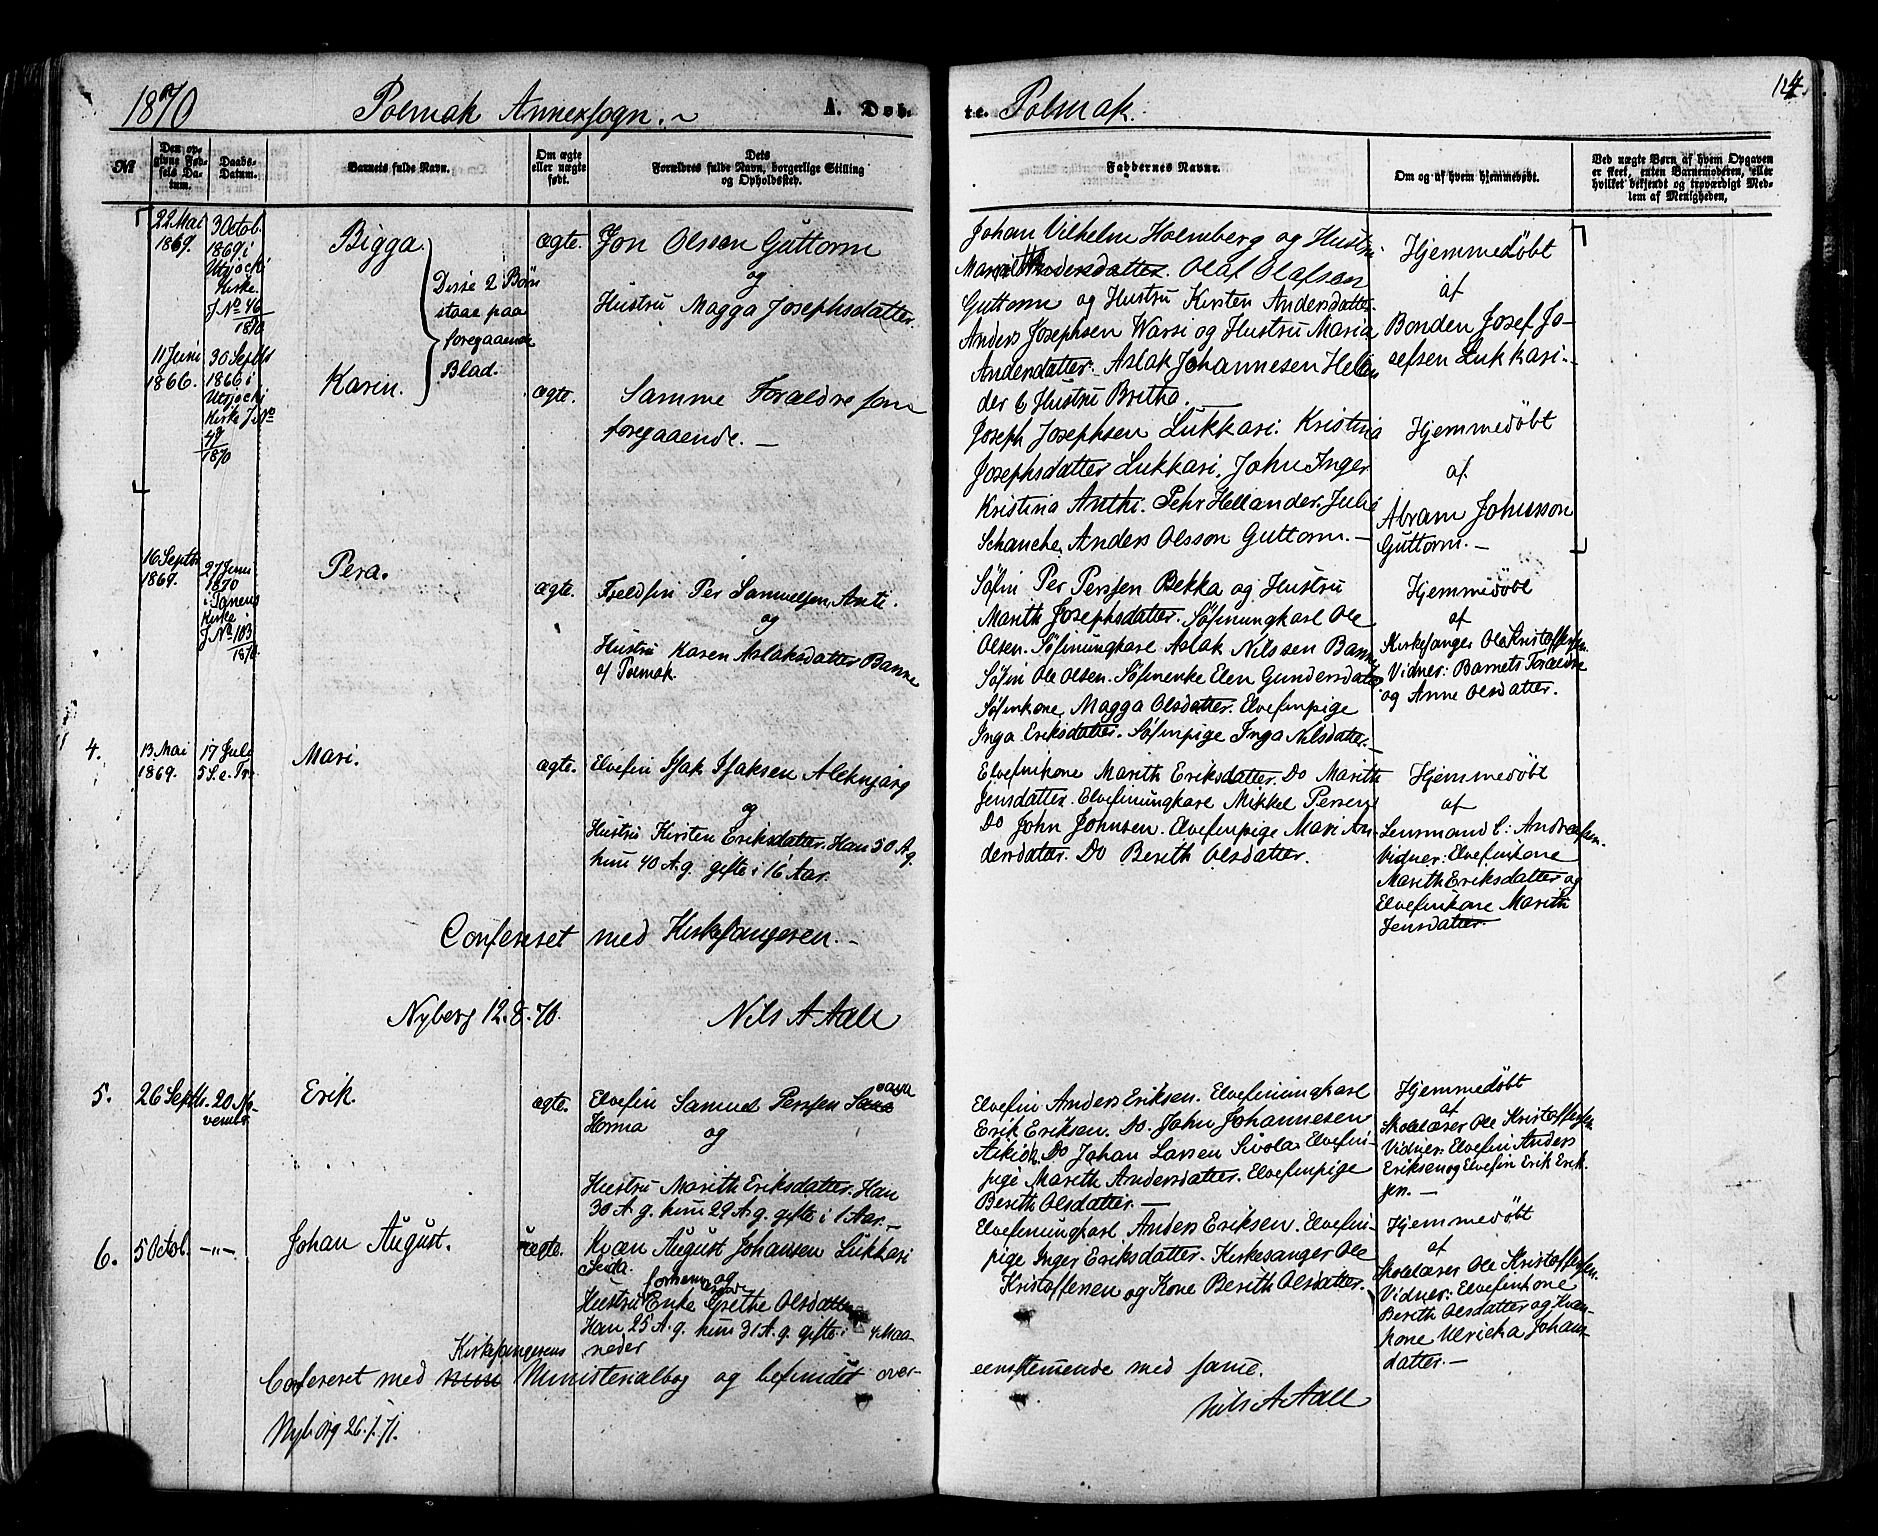 1870 Polmak Annexsogn. A. Døb. te. Polmak. 124.
№
Den opgivne Fødsels Datum.
Daabs-Datum.
Barnets fulde Navn.
Om ægte eller uægte født.
Dets Forældres fulde Navn, borgerlige Stilling og Opholdssted.
Faddernes Navne.
Om og af hvem hjemmedøbt.
Ved uægte Børn af hvem Opgaven er skeet, enten Barnemoderen, eller hvilket bekjendt og troværdigt Medlem af Menigheden.
22 Mai
1869.
3 Octob.
1869 i
Utsjocki
Kirke.
J No 46
1870
Bigga.
Disse 2 Børn
staae paa
foregaaende
Blad.
ægte.
Jon Olsson Guttorm
og
Hustru Magga Josephsdatter.
Johan Vilhelm Holmberg og Hustru
Andersdatter. Olaf Olafsen
Guttorm og Hustru Kirsten Andersdatter
Anders Josephsen Warsi og Hustru Maria
Andersdatter. Aslak Johannesen Hellan
der & Hustru Britha.
Hjemmedøbt
af
Bonden Josef Jo-
sefsen Lukkari.
11 Juni
1866.
30 Septbr
1866 i
Utsjocki
Kirke J. No
48
1870
Karin.
ægte.
Samme Foraldre som
foregaaende. —
Joseph Josephsen Lukkari. Kristina
Josephsdatter Lukkari. John Inger
Kristina Anthi. Pehr Hellander. Julie
Schanche. Anders Olsson Guttorm. —
Hjemmedøbt
af
Abram Johnsson
Guttorm. —
16 Septbr
1869.
27 Juni
1870
i Tanens
Kirke
J No 103
1870.
Pera.
ægte.
Fjeldfin Per Samuelsen Anti.
og
Hustru Karen Aslaksdatter Banne
af Polmak.
Søfin Per Perssen Bekka og Hustru
Marith Josephsdatter. Søfinungkarl Ole
Olsen. Søfinungkarl Aslak Nilssen Banne
Søfin Ole Olsen. Søfinenke Elen Gundersdatter
Søfinkone Magga Olsdatter. Elvefinpige
Inga Eriksdatter. Søfinpige Inga Nilsdatter. —
Hjemmedøbt
af
Kirkesanger Ole Kristoffersen.
Vidner: Barnets Forældre
og Anne Olsdatter.
4.
13 Mai
1869.
17 Juli
5 S. e. Tr.
Mari.
ægte.
Elvefin Isak Isaksen Aleknjarg
og
Hustru Kirsten Eriksdatter. Han 50 A g.
hun 40 A. g. gifte i 16 Aar.
Elvefinkone Marith Eriksdatter. Do Marith
Jensdatter. Elvefinungkarl Mikkel Persen
Do John Johnsen. Elvefinpige Mari An-
dersdatter. Do Berith Olsdatter.
Hjemmedøbt
af
Lensmand C: Andreassen.
Vidner: Elvefinkone
Marith Eriksdatter og
Elvefinkone Marith
Jensdatter.
Confereret med Kirkesangeren. —
Nyborg 12. 8. 70. Nils A Aall
5.
26 Septbr.
20 No-
vembr.
Erik.
ægte.
Elvefin Samuel Perssen
Horma
og
Hustru Marith Eriksdatter. Han
30 A g. hun 29 A g. gifte i 1 Aar. —
Elvefin Anders Eriksen. Elvefinungkarl
Erik Eriksen. Do. John Johannesen
Aikio. Do Johan Larsen Sivola. Elvefin-
pige Marith Andersdatter. Elvefinpige
Berith Olsdatter. —
Hjemmedøbt
af
Skolelærer Ole Kristoffersen.
Vidner: Elvefin Anders
Eriksen og Elvefin Erik Erik-
sen. —
6.
5 Octob.
—"—
Johan August.
uægte.
Kvæn August Johansen Lukkari
Sæda.
og
Hustru Enke Grethe Olsdatter
Han 25 A. g. hun 31 A. g. gifte i 4 Maa-
neder
Elvefinungkarl Anders Eriksen. Elvefin-
pige Inger Eriksdatter. Kirkesanger Ole
Kristoffersen og Kone Berith Olsdatter.
Hjemmedøbt
af
Skolelærer Ole Kristoffersen.
Vidner: Elvefinkone
Berith Olsdatter og Kvæn-
kone Ulricka Johans-
datter. —
Kirkesangerens
Confereret med Ministerialbog og befundet over-
eensstemmende med samme.
Nyborg 26. 1. 71. Nils A Aall